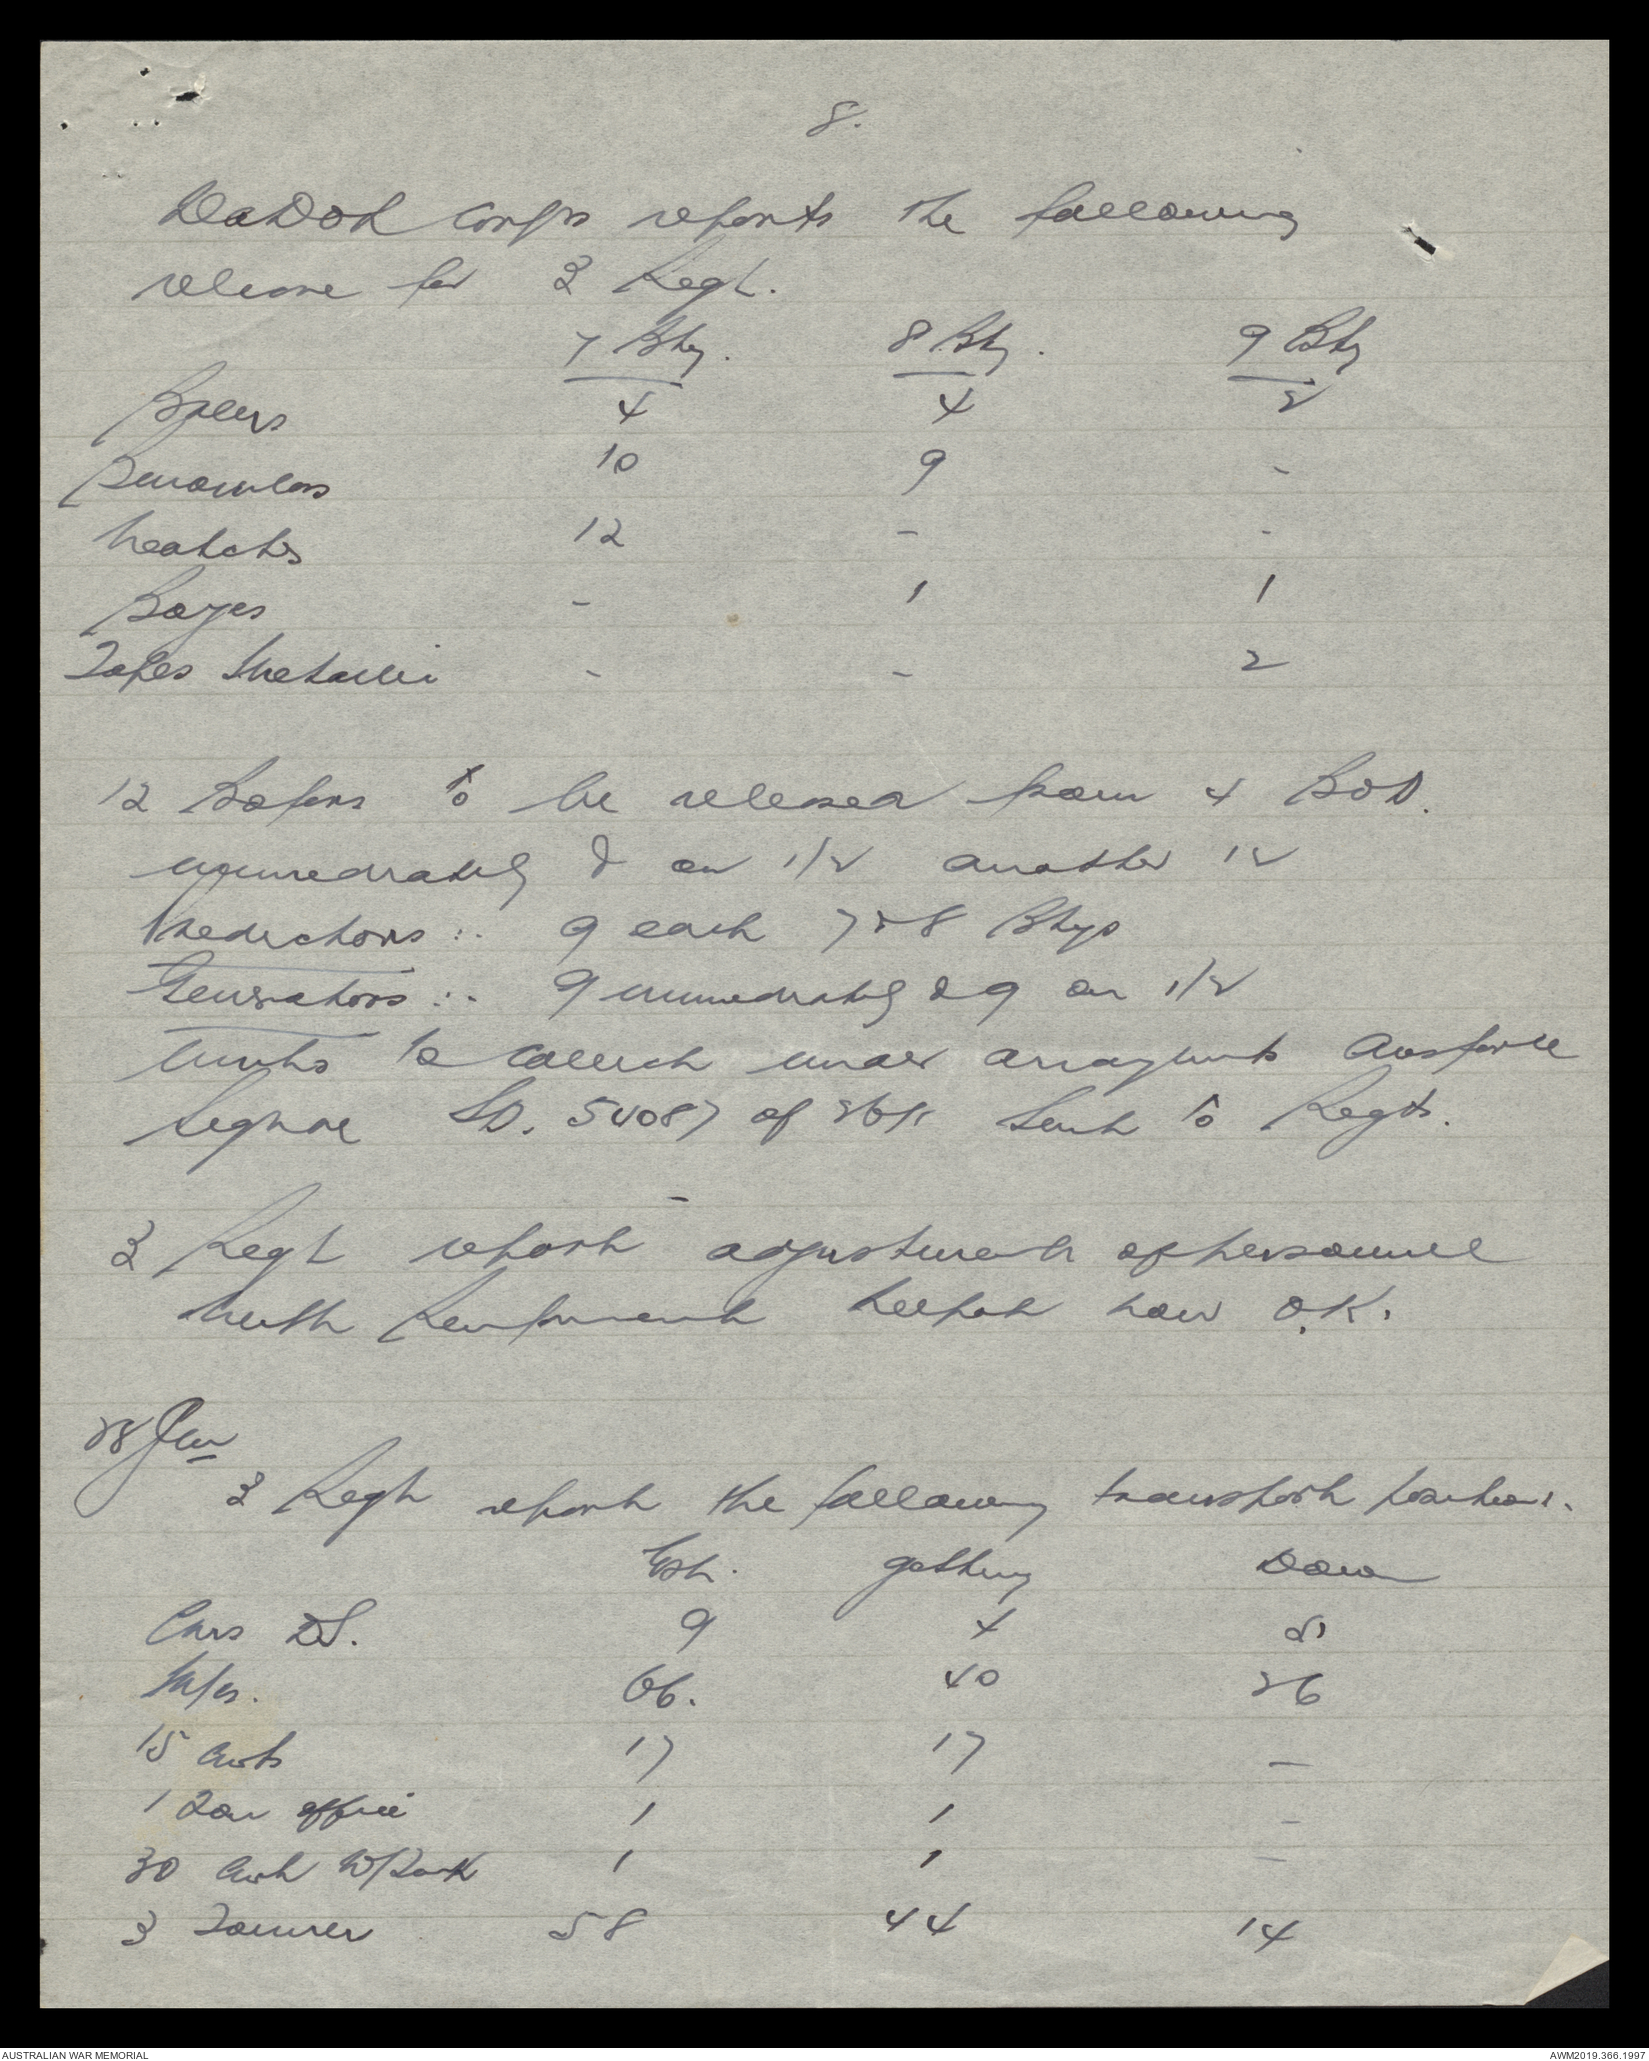 8.
DaDOS Corps reports the following
release for 3 Regt.
7 Bty. 8 Bty. 9 Bty
Brens 4 4 2
Binoculars 10 9 -
Watches 12 - -
Boyes - 1 1
Tapes Metallic - - 2
12 Bofors to be released from 4 BOD.
immediately & on 1/2 another 12
Predictors :. 9 each 7 & 8 Btys
Generators :. 9 immediately & 9 on 1/2
Units to collect under arrangements Ausforce
Signal SD. 54087 of 26/1 Sent to Regts.
3 Regt report adjustment of personnel
with Reinforcement Depot now O.K.
28 Jan
3 Regt report the following transport position.
Est. getting Down
Cars 2S. 9 4 5
M/cs. 66. 40 26
15 cwts 17 17 -
1 Ton office 1 1 -
30 cwt W/Tank 1 1 -
3 Tonner 58 44 14
AUSTRALIAN WAR MEMORIAL
AWM2019.366.1997